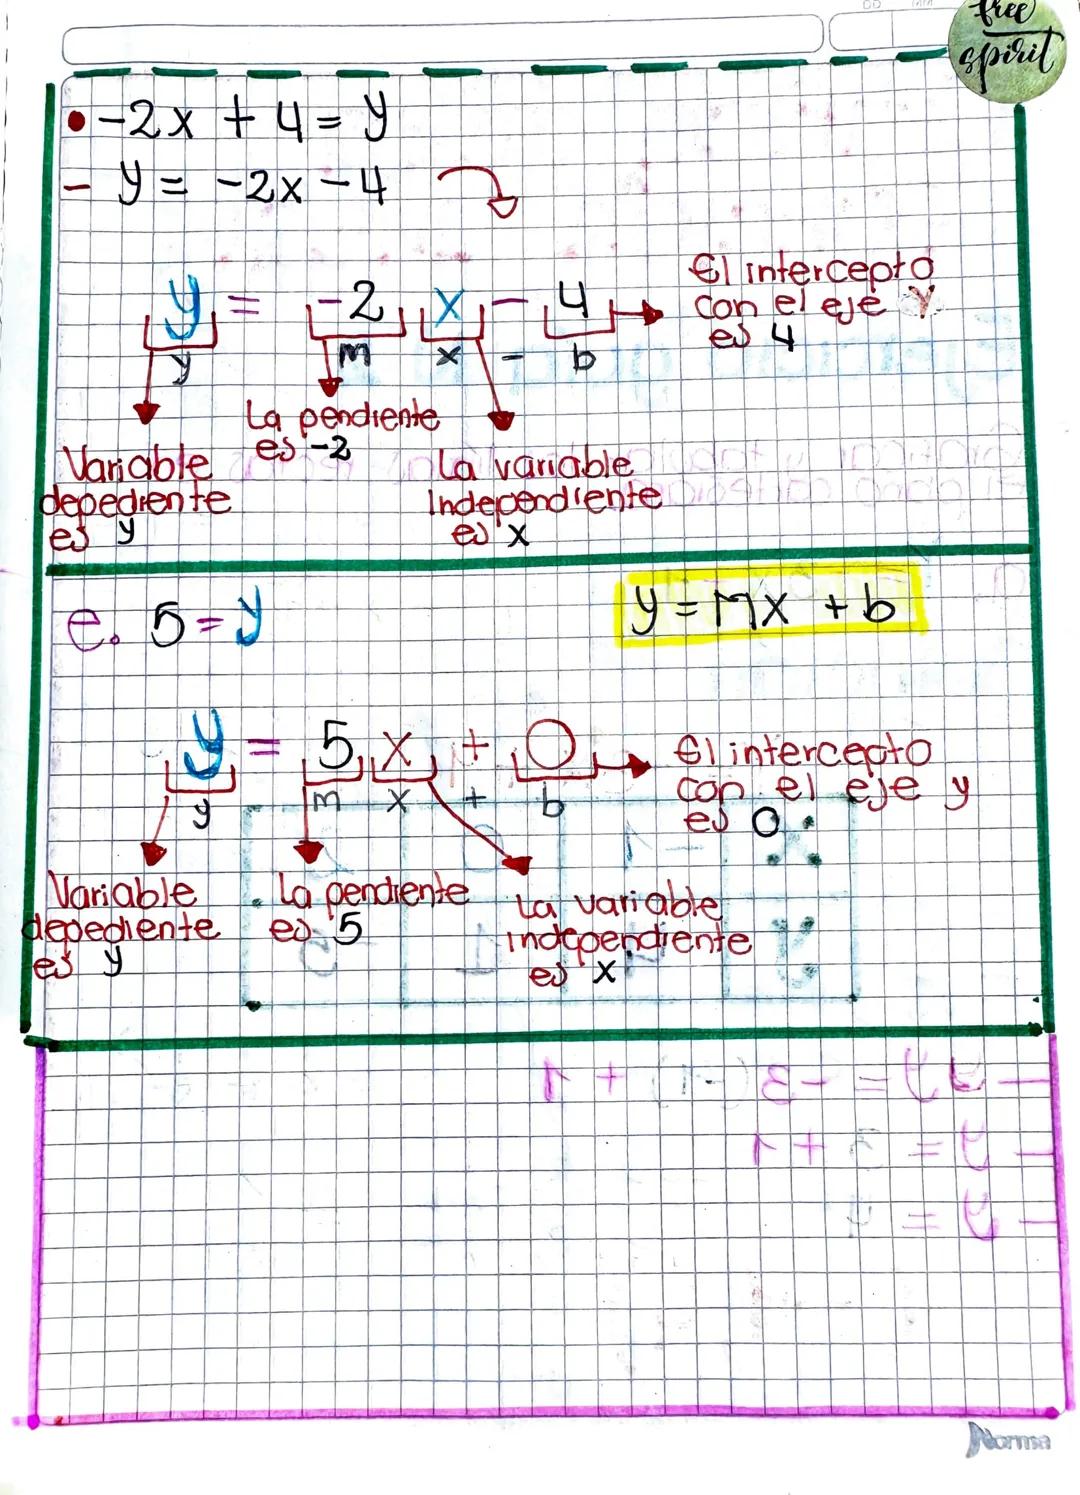 free
spirit
• -2x + 4 = y
- y = -2x - 4
y = -2 x - 4
y m x - b
El intercepto
con el eje y
es 4
La pendiente
es -2
Variable
depediente
es y
La variable
Independiente
es x
e. 5 = y
y = mx + b
y = 5 x + 0
y m x + b
El intercepto
con el eje y
es 0
Variable
depediente
es y
La pendiente
es 5
La variable
independiente
es x
Norma